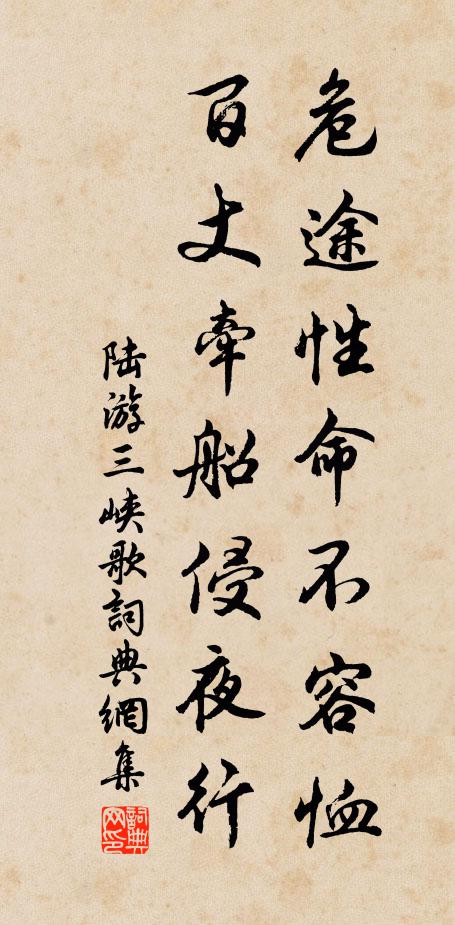 危途性命不容恤
百丈牵船侵夜行
陆游三峡歌詞典網集
詞典网印